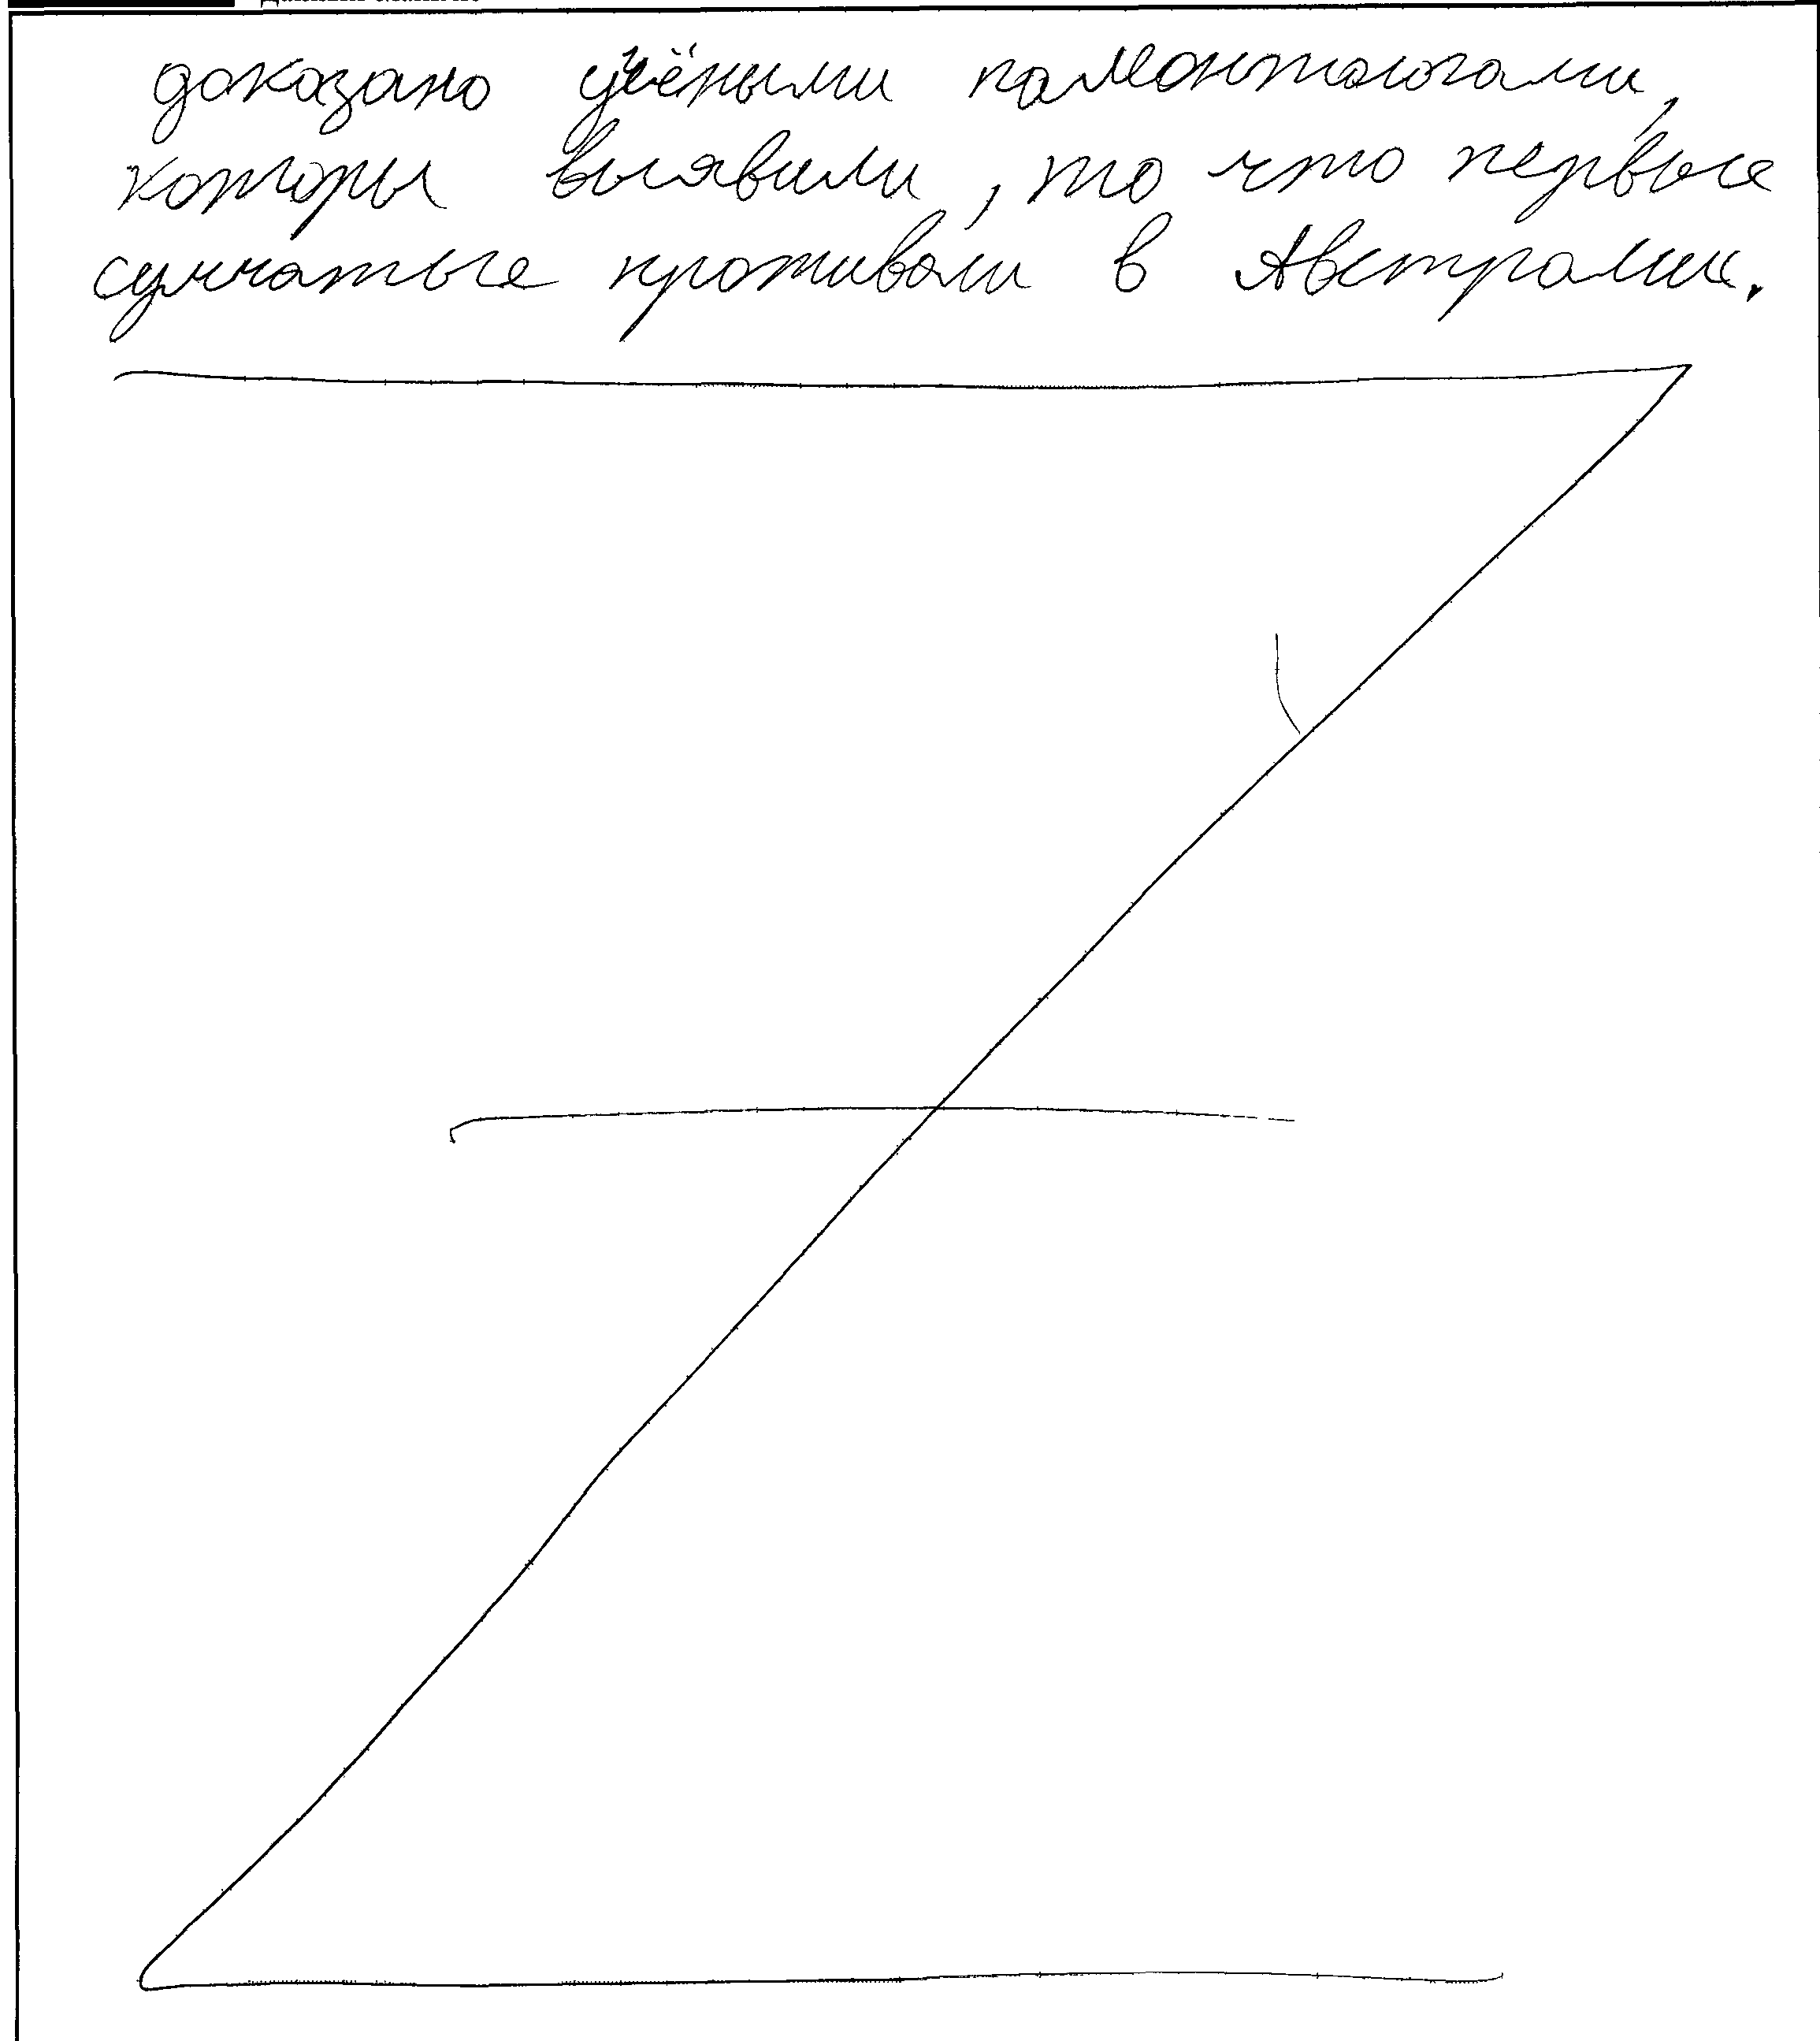 доказано учёными палеонтологами,
которы выявили, то что первые
сумчатые проживали в Австралии.